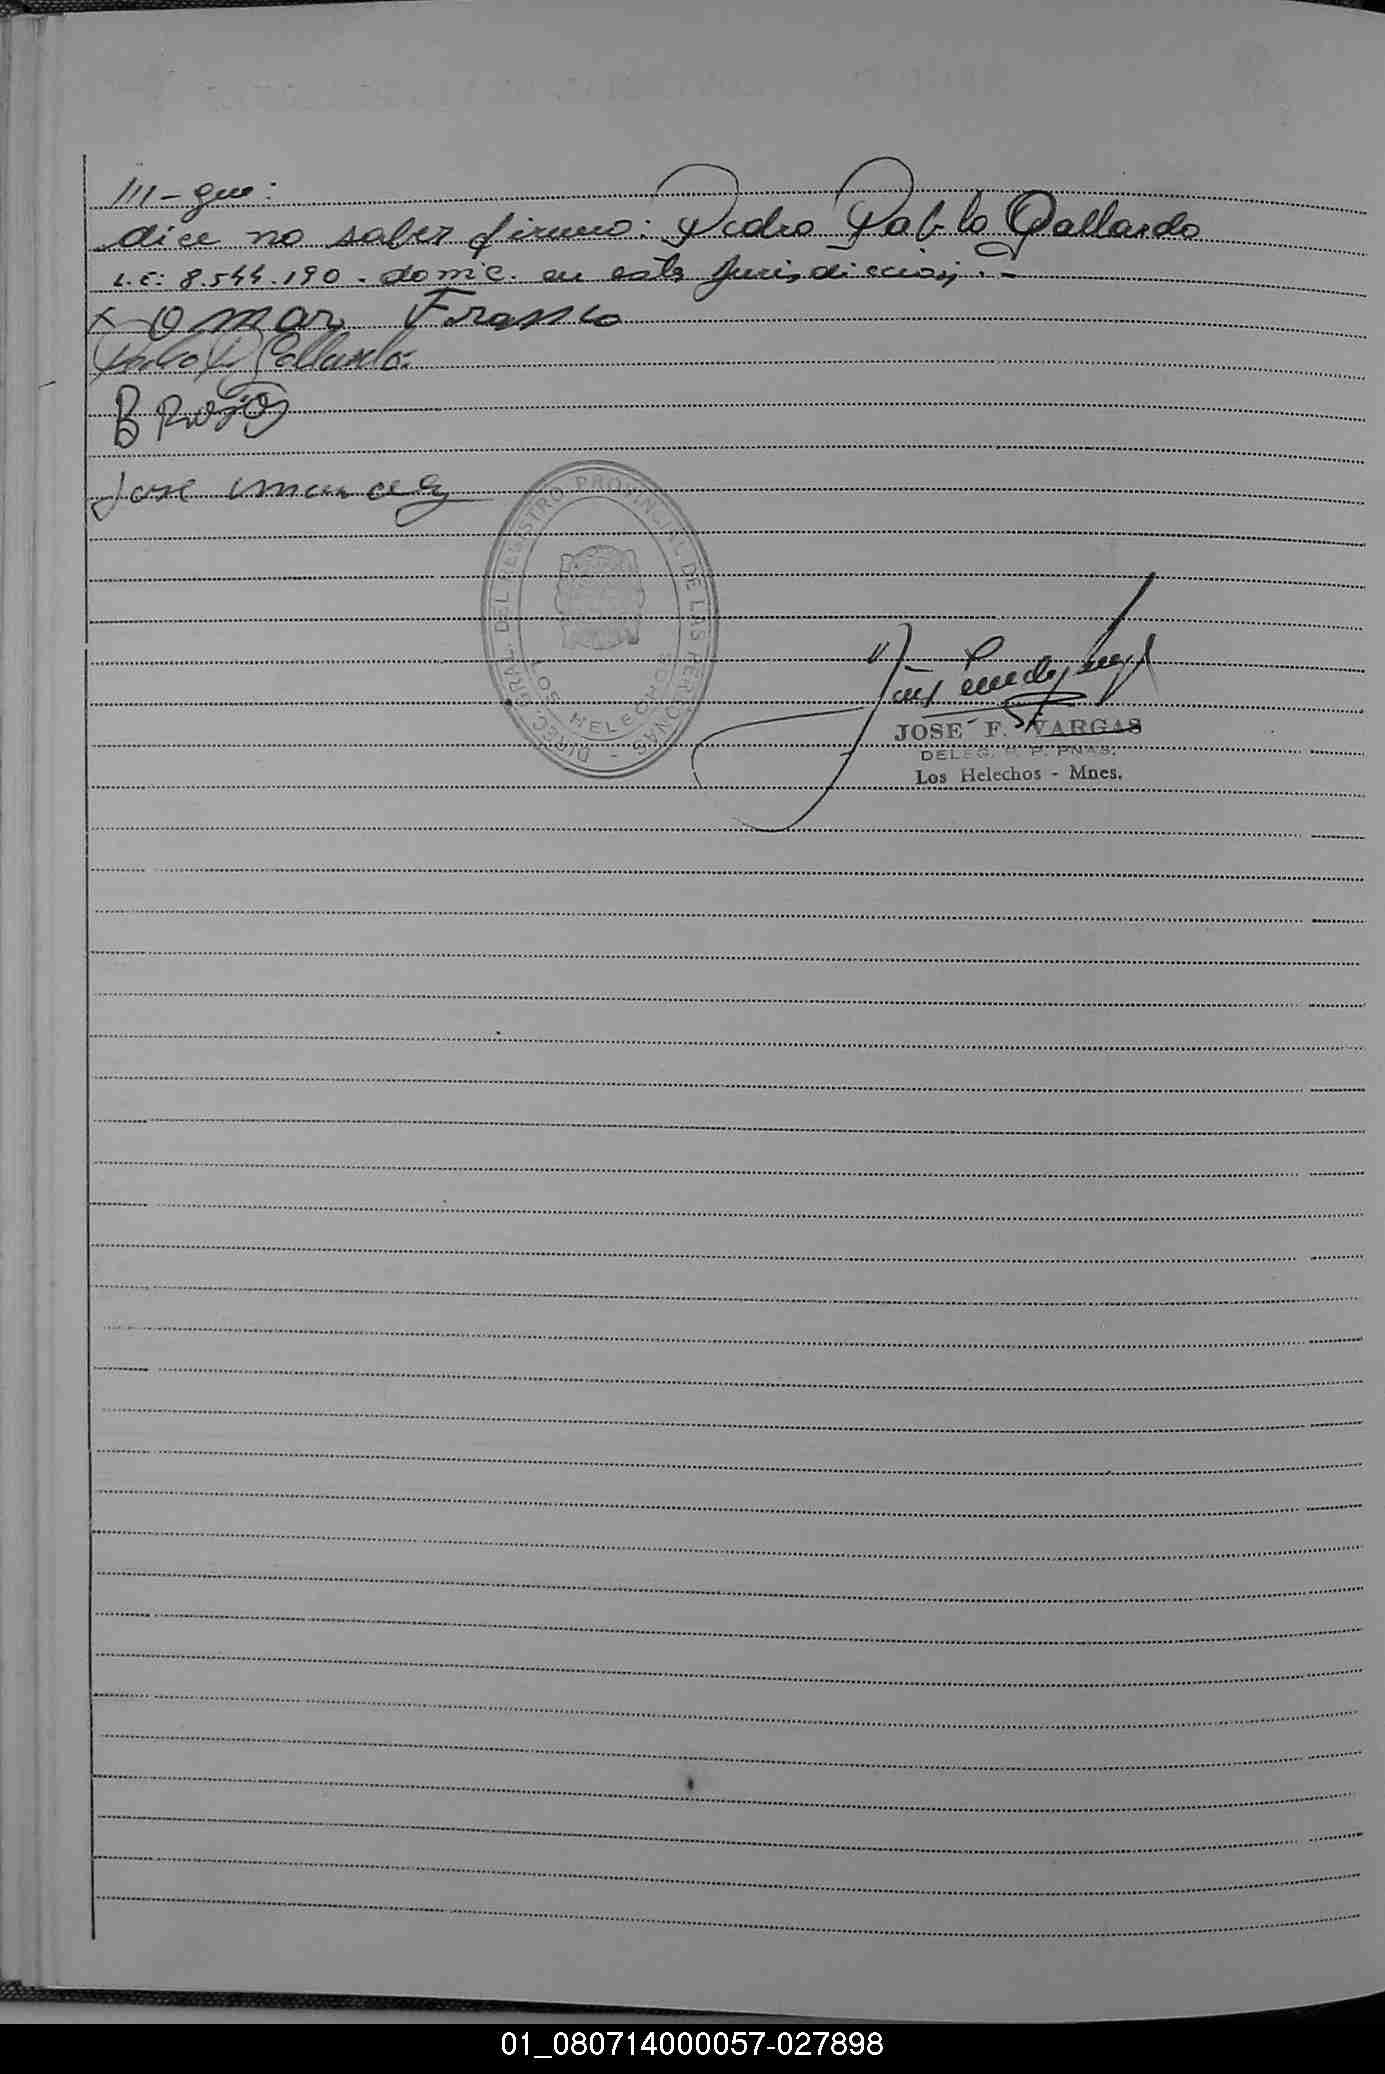 ///-que:
dice no saber firmar: Pedro Pablo Gallardo
L.E: 8.544.190 - domic. en esta Jurisdiccion. -
x Omar Franco
Pedro P. Gallardo
B Rojas
Jose
DIREC. GRAL. DEL REGISTRO PROVINCIAL DE LAS PERSONAS -
LOS HELECHOS
JOSE F. VARGAS
DELEG. R. P. PNAS.
Los Helechos - Mnes.
01_080714000057-027898